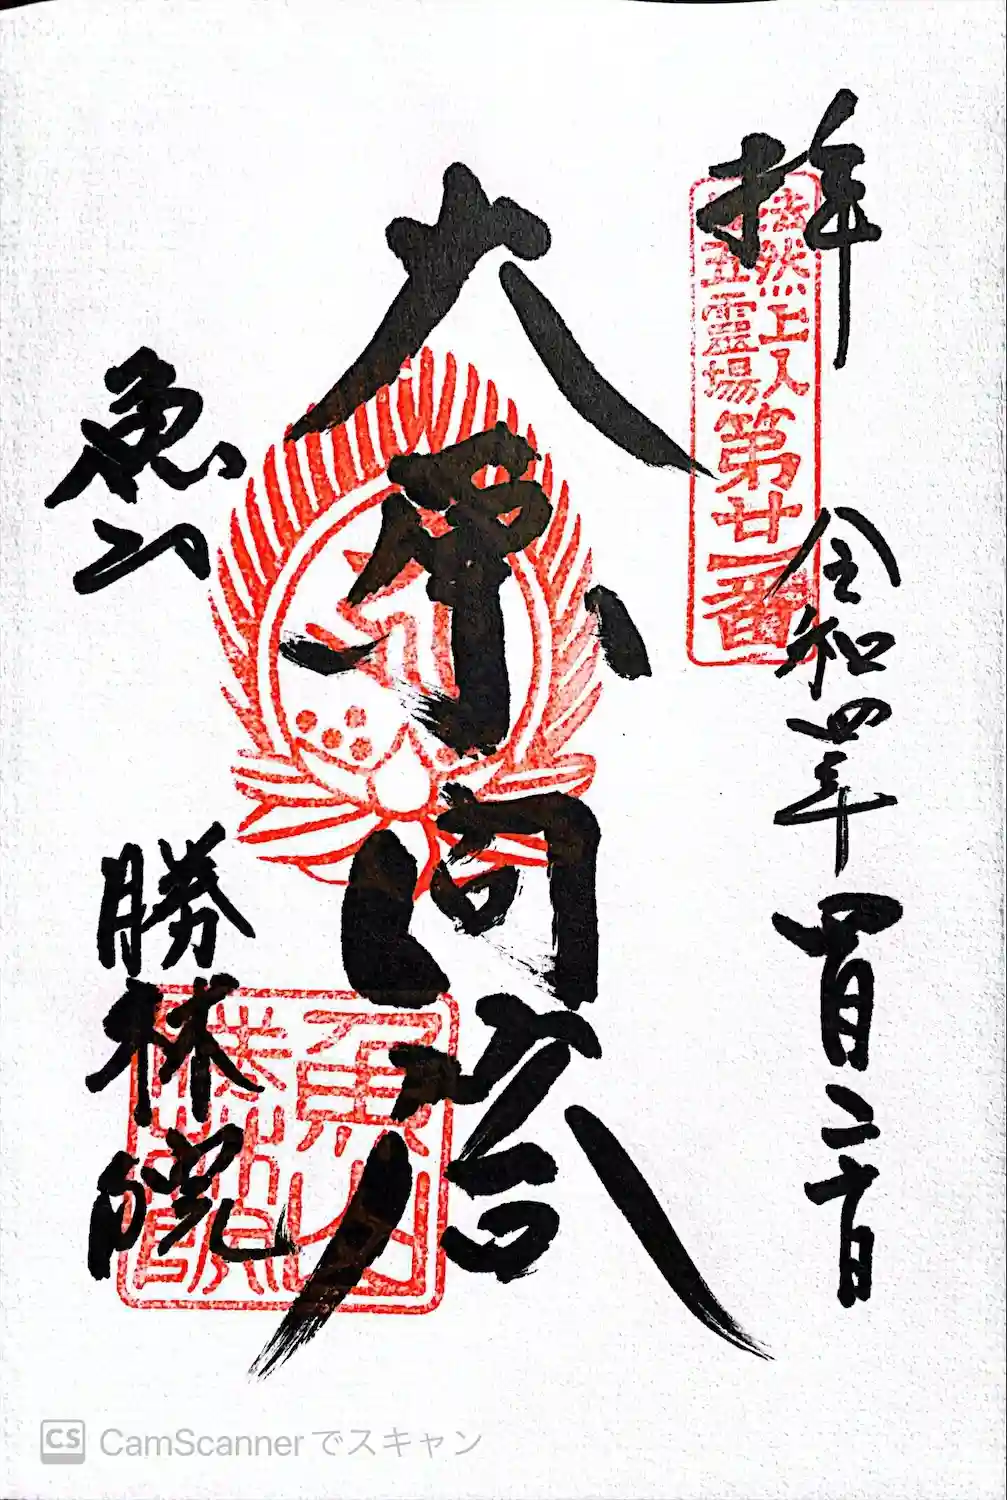 拝
法然上人
五霊場
第廿一番
令和四年四月二十日
大原問答
魚山
勝林院
魚山
勝林院
CS CamScannerでスキャン